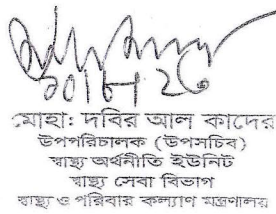 মোহা: দবির আল কাদের
উপপরিচালক (উপসচিব)
স্বাস্থ্য অর্থনীতি ইউনিট
স্বাস্থ্য সেবা বিভাগ
স্বাস্থ্য ও পরিবার কল্যাণ মন্ত্রণালয়